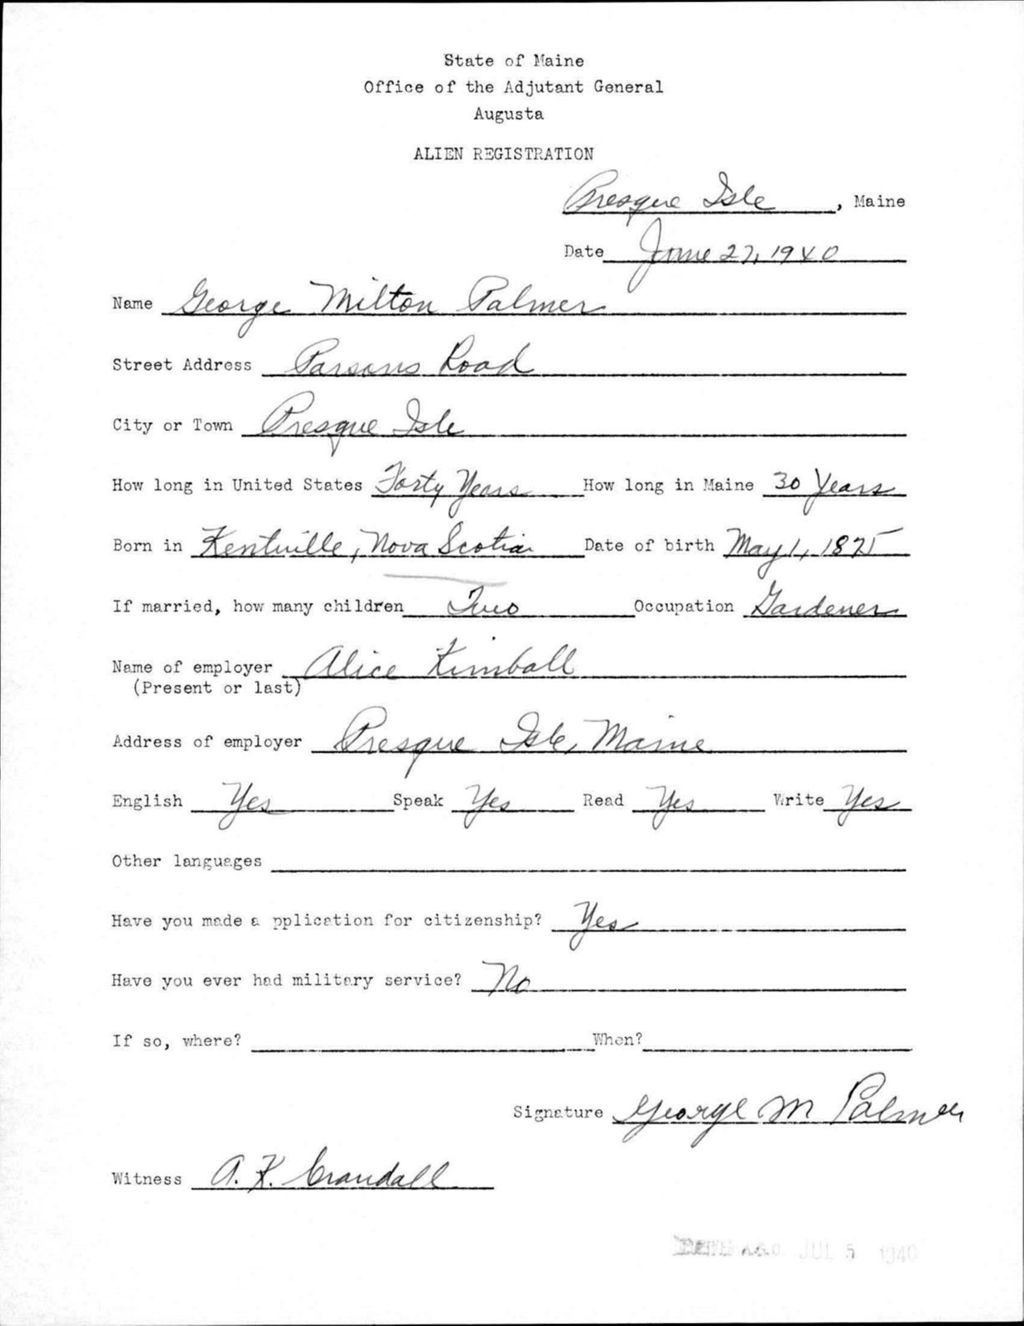 State of Maine
Office of the Adjutant General
Augusta
ALIEN REGISTRATION
Presque Isle, Maine
Date June 27, 1940
Name George Milton Palmer
Street Address Parsons Road
City or Town Presque Isle
How long in United States Forty Years How long in Maine 30 Years
Born in Kentville, Nova Scotia Date of birth May 1, 1875
If married, how many children Two Occupation Gardener
Name of employer Alice Kimball
(Present or last)
Address of employer Presque Isle, Maine
English Yes Speak Yes Read Yes Write Yes
Other languages
Have you made a pplication for citizenship? Yes
Have you ever had military service? No
If so, where? When?
Signature George M Palmer
Witness A. K. Crandall
A.G.O. JUL 5 1940